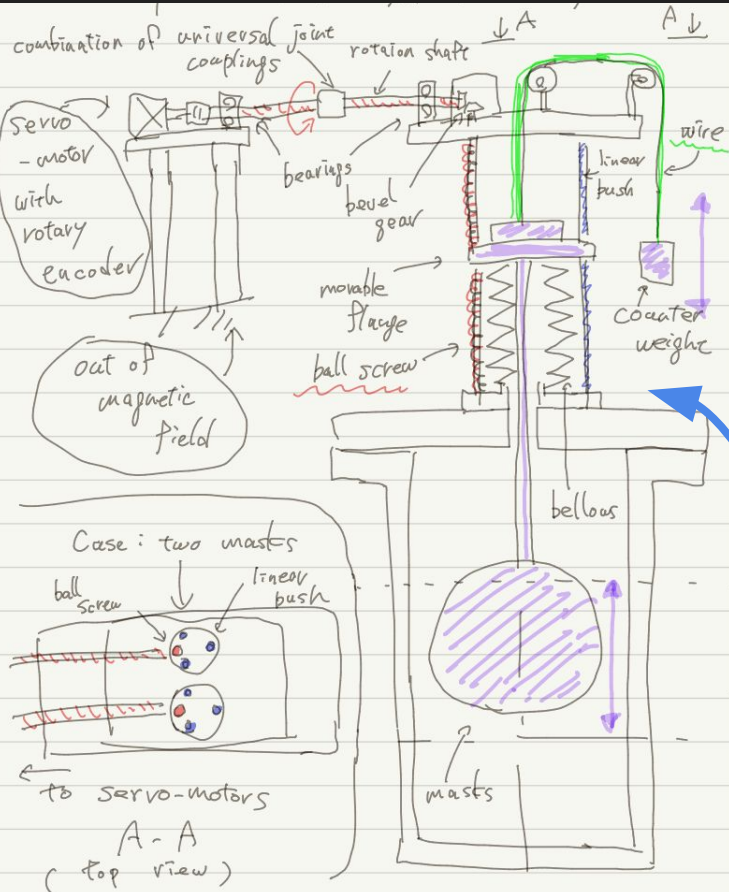 combination of universal joint
couplings
rotaion shaft
A
A
servo
-motor
with
rotary
encoder
bearings
bevel
gear
linear
bush
wire
movable
flange
ball screw
counter
weight
out of
magnetic
field
bellows
Case : two masks
ball
screw
linear
bush
masks
to servo-motors
A - A
( top view )